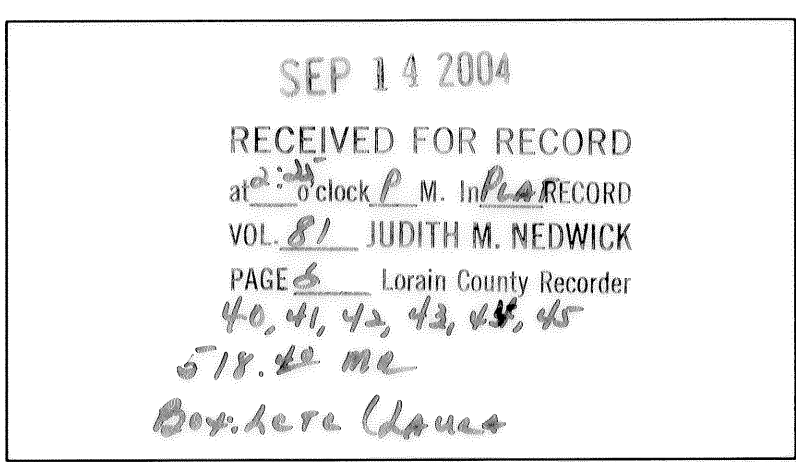 SEP 14 2004
RECEIVED FOR RECORD
at 2:25 o'clock P M. In PLAT RECORD
VOL. 81 JUDITH M. NEDWICK
PAGE S Lorain County Recorder
40, 41, 42, 43, 44, 45
518.40
Box: